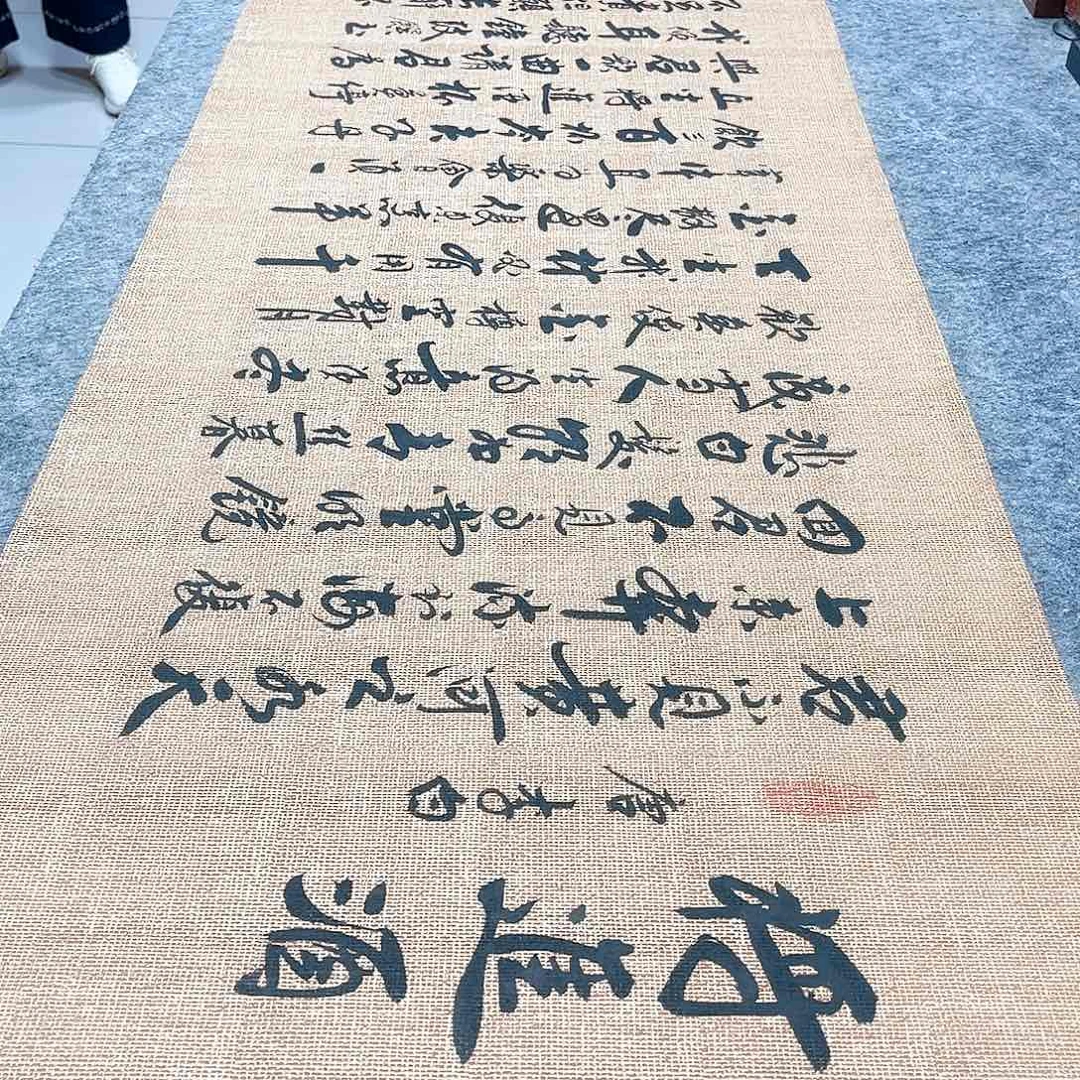 將進酒
唐李白
君不見黃河之水天
上來奔流到海不復
回君不見高堂明鏡
悲白髮朝如青絲暮
成雪人生得意須盡
歡莫使金樽空對月
天生我材必有用千
金散盡還復來烹羊
宰牛且為樂會須一
飲三百杯岑夫子丹
丘生將進酒杯莫停
與君歌一曲請君為
我傾耳聽鐘鼓饌玉
不足貴但願長醉不